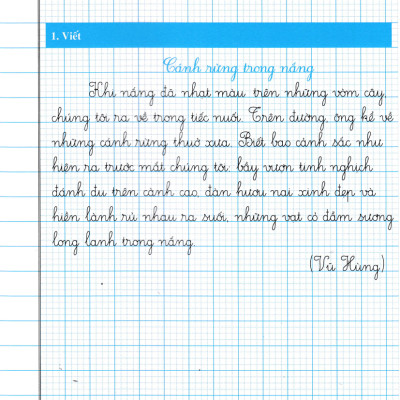 1. Viết
Cánh rừng trong nắng
Khi nắng đã nhạt màu trên những vòm cây,
chúng tôi ra về trong tiếc nuối. Trên đường, ông kể về
những cánh rừng thuở xưa. Biết bao cảnh sắc như
hiện ra trước mắt chúng tôi: bầy vượn tinh nghịch
đánh đu trên cành cao, đàn hươu nai xinh đẹp và
hiền lành rủ nhau ra suối, những vạt cỏ đẫm sương
long lanh trong nắng.
(Vũ Hùng)